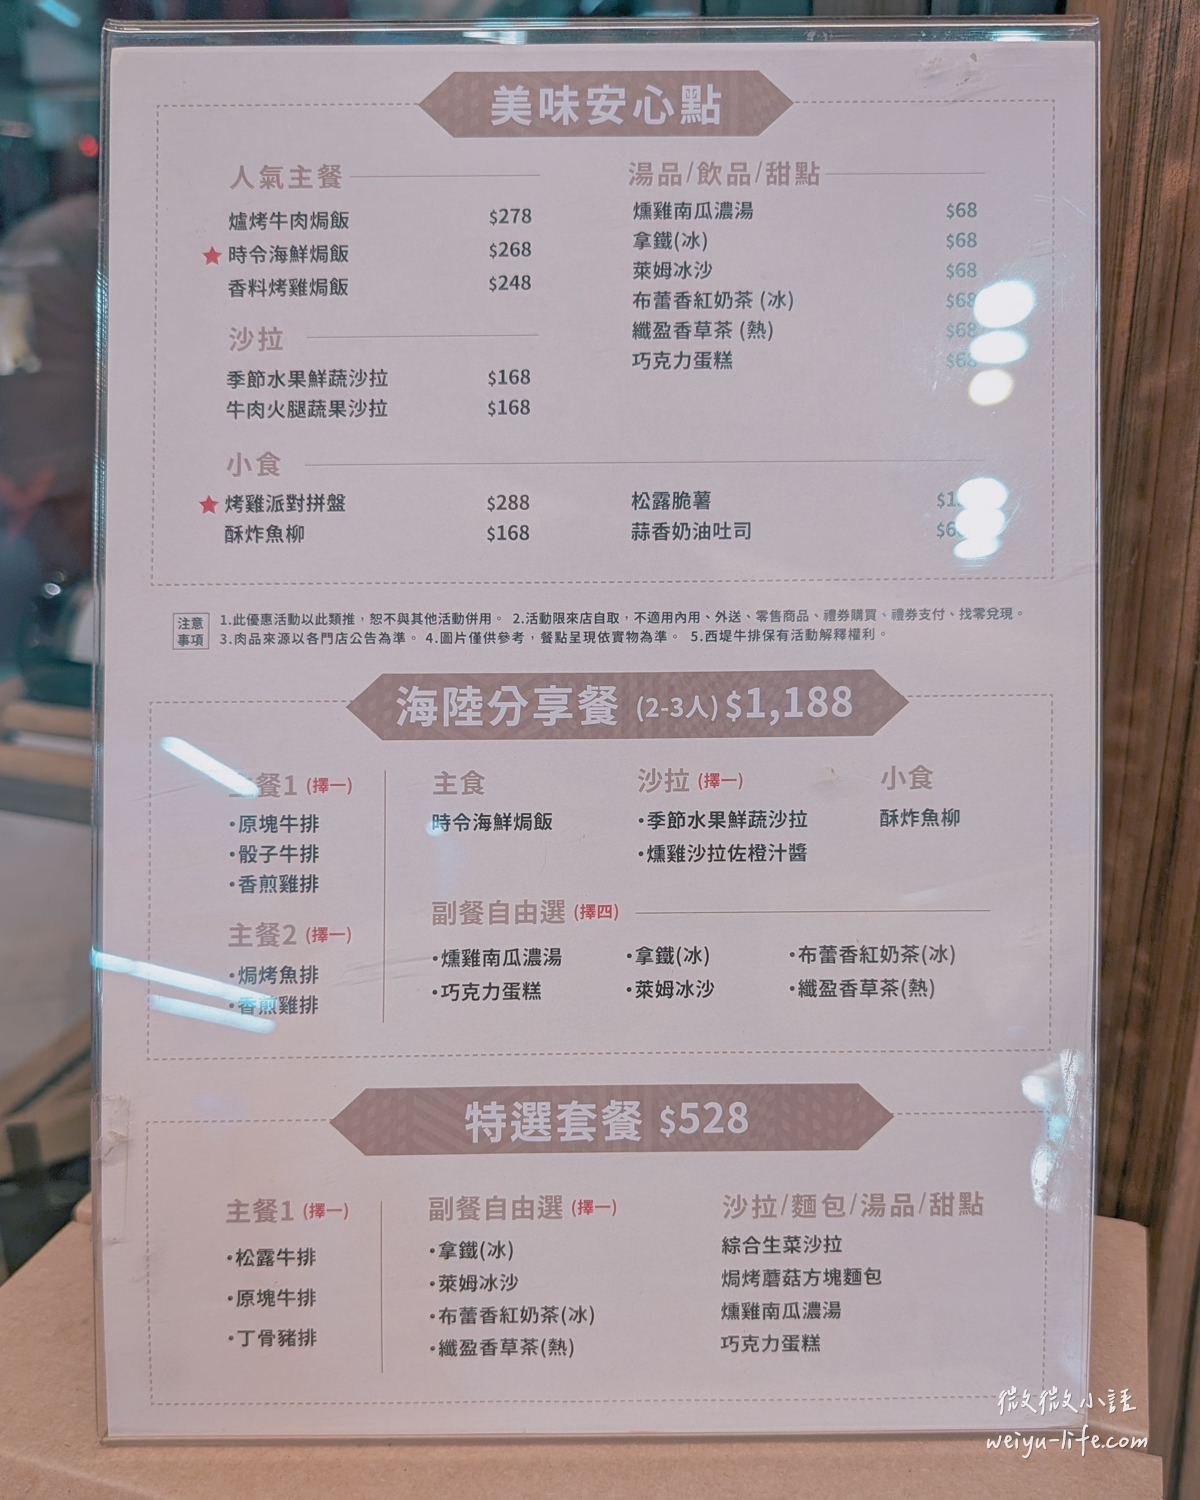 美味安心點
人氣主餐
爐烤牛肉焗飯 $278
★時令海鮮焗飯 $268
香料烤雞焗飯 $248
沙拉
季節水果鮮蔬沙拉 $168
牛肉火腿蔬果沙拉 $168
湯品/飲品/甜點
燻雞南瓜濃湯 $68
拿鐵(冰) $68
萊姆冰沙 $68
布蕾香紅奶茶 (冰) $68
纖盈香草茶 (熱) $68
巧克力蛋糕 $68
小食
★烤雞派對拼盤 $288
酥炸魚柳 $168
松露脆薯
蒜香奶油吐司
注意事項
1.此優惠活動以此類推,恕不與其他活動併用。 2.活動限來店自取,不適用內用、外送、零售商品、禮券購買、禮券支付、找零兌現。
3.肉品來源以各門店公告為準。 4.圖片僅供參考,餐點呈現依實物為準。 5.西堤牛排保有活動解釋權利。
海陸分享餐 (2-3人) $1,188
主餐1 (擇一)
•原塊牛排
•骰子牛排
•香煎雞排
主餐2 (擇一)
•焗烤魚排
•香煎雞排
主食
時令海鮮焗飯
沙拉 (擇一)
•季節水果鮮蔬沙拉
•燻雞沙拉佐橙汁醬
小食
酥炸魚柳
副餐自由選 (擇四)
•燻雞南瓜濃湯 •拿鐵(冰) •布蕾香紅奶茶(冰)
•巧克力蛋糕 •萊姆冰沙 •纖盈香草茶(熱)
特選套餐 $528
主餐1 (擇一)
•松露牛排
•原塊牛排
•丁骨豬排
副餐自由選 (擇一)
•拿鐵(冰)
•萊姆冰沙
•布蕾香紅奶茶(冰)
•纖盈香草茶(熱)
沙拉/麵包/湯品/甜點
綜合生菜沙拉
焗烤蘑菇方塊麵包
燻雞南瓜濃湯
巧克力蛋糕
微微小語
weiyu-life.com